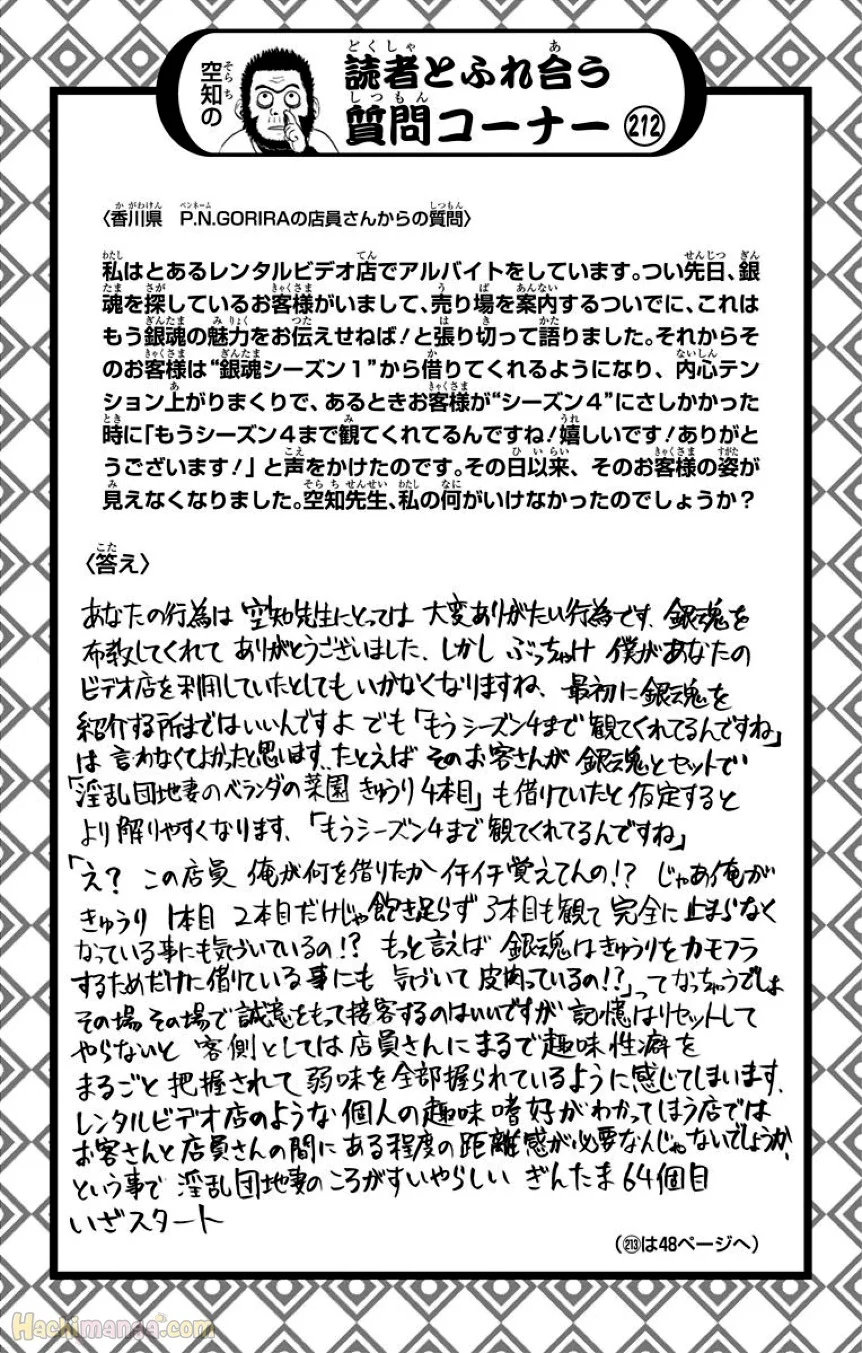 空知の
読者とふれ合う
質問コーナー 212
〈香川県 P.N.GORIRAの店員さんからの質問〉
私はとあるレンタルビデオ店でアルバイトをしています。つい先日、銀
魂を探しているお客様がいまして、売り場を案内するついでに、これは
もう銀魂の魅力をお伝えせねば！と張り切って語りました。それからそ
のお客様は“銀魂シーズン１”から借りてくれるようになり、内心テン
ション上がりまくりで、あるときお客様が“シーズン４”にさしかかった
時に「もうシーズン４まで観てくれてるんですね！嬉しいです！ありがと
うございます！」と声をかけたのです。その日以来、そのお客様の姿が
見えなくなりました。空知先生、私の何がいけなかったのでしょうか？
〈答え〉
あなたの行為は 空知先生にとっては 大変ありがたい行為です、銀魂を
布教してくれて ありがとうございました、しかし ぶっちゃけ 僕があなたの
ビデオ店を利用していたとしても いかなくなりますね、最初に銀魂を
紹介する所まではいいんですよ でも「もうシーズン4まで観てくれてるんですね」
は 言わなくてよかったと思います、たとえば そのお客さんが 銀魂とセットで
「淫乱団地妻のベランダの菜園 きゅうり4本目」も借りていたと仮定すると
より解りやすくなります、「もうシーズン4まで観てくれてるんですね」
「え？ この店員 俺が何を借りたか イチイチ覚えてんの!? じゃあ俺が
きゅうり 1本目 2本目だけじゃ飽き足らず 3本目も観て 完全に止まらなく
なっている事にも気づいているの!? もっと言えば 銀魂はきゅうりをカモフラ
するためだけに借りている事にも 気づいて皮肉っているの!?」ってなっちゃうでしょ
その場その場で誠意をもって接客するのはいいですが 記憶はリセットして
やらないと 客側としては店員さんにまるで趣味性癖を
まるごと把握されて 弱味を全部握られているように感じてしまいます、
レンタルビデオ店のような個人の趣味嗜好がわかってしまう店では
お客さんと店員さんの間にある程度の距離感が必要なんじゃないでしょうか、
という事で 淫乱団地妻のころがすいやらしい ぎんたま 64個目
いざスタート
（213は48ページへ）
Hachimanga.com